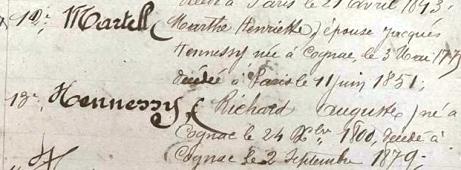 décédé à Paris le 21 avril 1843.
12e. Martell (Marthe Henriette) épouse Jacques
Hennessy née à Cognac, le 3
décédé à Paris le 11 juin 1851;
13e. Hennessy (Richard auguste) né à
Cognac le 24 Xbre 1800, décédé à
Cognac le 2 Septembre 1879.